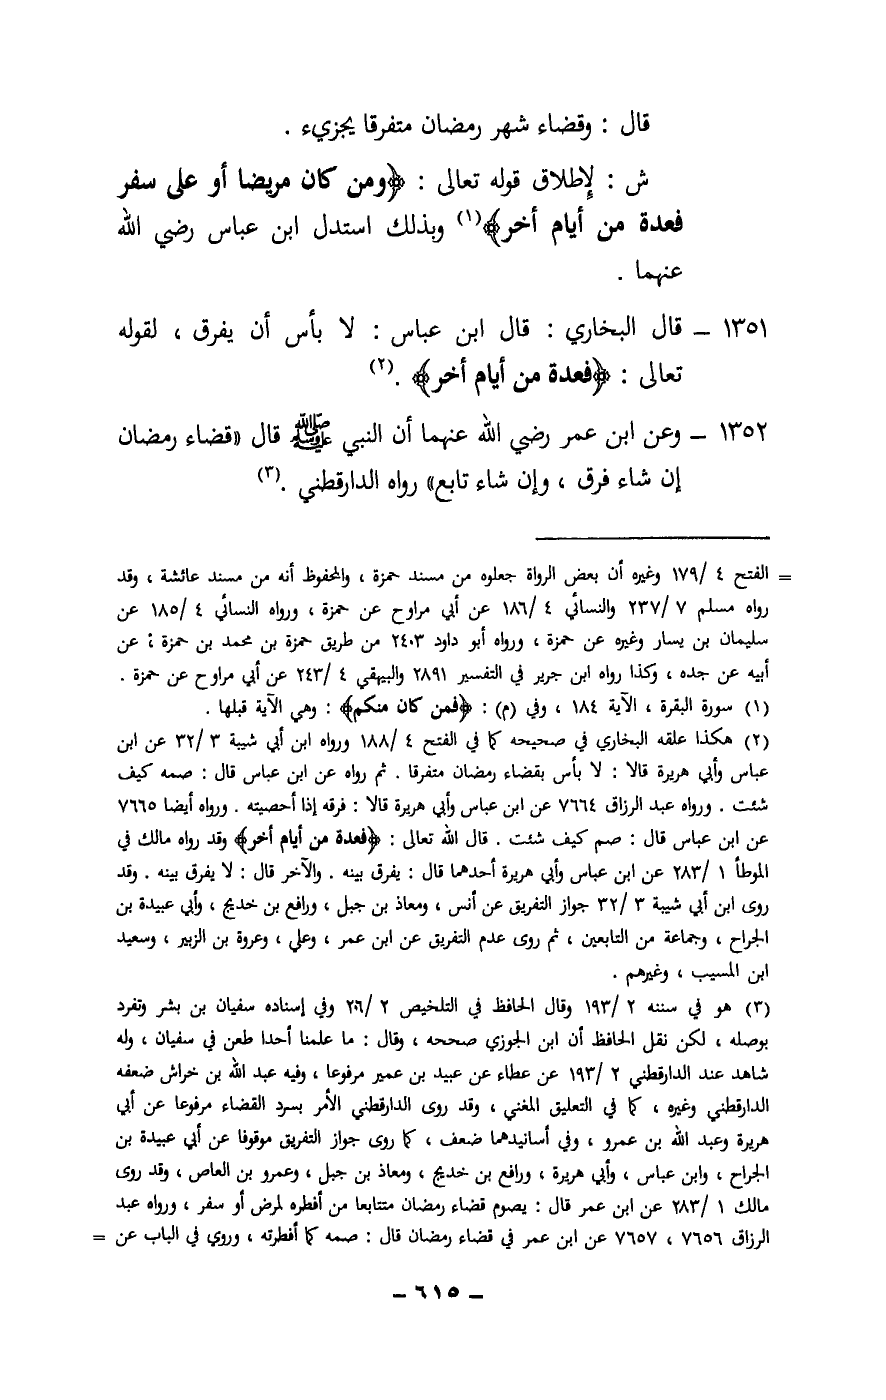 قال : وقضاء شهر رمضان متفرقا يجزيء .
ش : لإطلاق قوله تعالى : ﴿ومن كان مريضا أو على سفر
فعدة من أيام أخر﴾(١) وبذلك استدل ابن عباس رضي الله
عنهما .
١٣٥١ – قال البخاري : قال ابن عباس : لا بأس أن يفرق ، لقوله
تعالى : ﴿فعدة من أيام أخر﴾ .(٢)
١٣٥٢ – وعن ابن عمر رضي الله عنهما أن النبي ﷺ قال «قضاء رمضان
إن شاء فرق ، وإن شاء تابع» رواه الدارقطني .(٣)
= الفتح ٤ /١٧٩ وغيره أن بعض الرواة جعلوه من مسند حمزة ، والمحفوظ أنه من مسند عائشة ، وقد
رواه مسلم ٧ /٢٣٧ والنسائي ٤ /١٨٦ عن أبي مراوح عن حمزة ، ورواه النسائي ٤ /١٨٥ عن
سليمان بن يسار وغيره عن حمزة ، ورواه أبو داود ٢٤٠٣ من طريق حمزة بن محمد بن حمزة ، عن
أبيه عن جده ، وكذا رواه ابن جرير في التفسير ٢٨٩١ والبيهقي ٤ /٢٤٣ عن أبي مراوح عن حمزة .
(١) سورة البقرة ، الآية ١٨٤ ، وفي (م) : ﴿فمن كان منكم﴾ : وهي الآية قبلها .
(٢) هكذا علقه البخاري في صحيحه كما في الفتح ٤ /١٨٨ ورواه ابن أبي شيبة ٣ /٣٢ عن ابن
عباس وأبي هريرة قالا : لا بأس بقضاء رمضان متفرقا . ثم رواه عن ابن عباس قال : صمه كيف
شئت . ورواه عبد الرزاق ٧٦٦٤ عن ابن عباس وأبي هريرة قالا : فرقه إذا أحصيته . ورواه أيضا ٧٦٦٥
عن ابن عباس قال : صم كيف شئت . قال الله تعالى : ﴿فعدة من أيام أخر﴾ وقد رواه مالك في
الموطأ ١ /٢٨٣ عن ابن عباس وأبي هريرة أحدهما قال : يفرق بينه . والآخر قال : لا يفرق بينه . وقد
روى ابن أبي شيبة ٣ /٣٢ جواز التفريق عن أنس ، ومعاذ بن جبل ، ورافع بن خديج ، وأبي عبيدة بن
الجراح ، وجماعة من التابعين ، ثم روى عدم التفريق عن ابن عمر ، وعلي ، وعروة بن الزبير ، وسعيد
ابن المسيب ، وغيرهم .
(٣) هو في سننه ٢ /١٩٣ وقال الحافظ في التلخيص ٢ /٢٠٦ وفي إسناده سفيان بن بشر وتفرد
بوصله ، لكن نقل الحافظ أن ابن الجوزي صححه ، وقال : ما علمنا أحدا طعن في سفيان ، وله
شاهد عند الدارقطني ٢ /١٩٣ عن عطاء عن عبيد بن عمير مرفوعا ، وفيه عبد الله بن خراش ضعفه
الدارقطني وغيره ، كما في التعليق المغني ، وقد روى الدارقطني الأمر بسرد القضاء مرفوعا عن أبي
هريرة وعبد الله بن عمرو ، وفي أسانيدهما ضعف ، كما روى جواز التفريق موقوفا عن أبي عبيدة بن
الجراح ، وابن عباس ، وأبي هريرة ، ورافع بن خديج ، ومعاذ بن جبل ، وعمرو بن العاص ، وقد روى
مالك ١ /٢٨٣ عن ابن عمر قال : يصوم قضاء رمضان متتابعا من أفطره لمرض أو سفر ، ورواه عبد
الرزاق ٧٦٥٦ ، ٧٦٥٧ عن ابن عمر في قضاء رمضان قال : صمه كما أفطرته ، وروي في الباب عن =
– ٦١٥ –